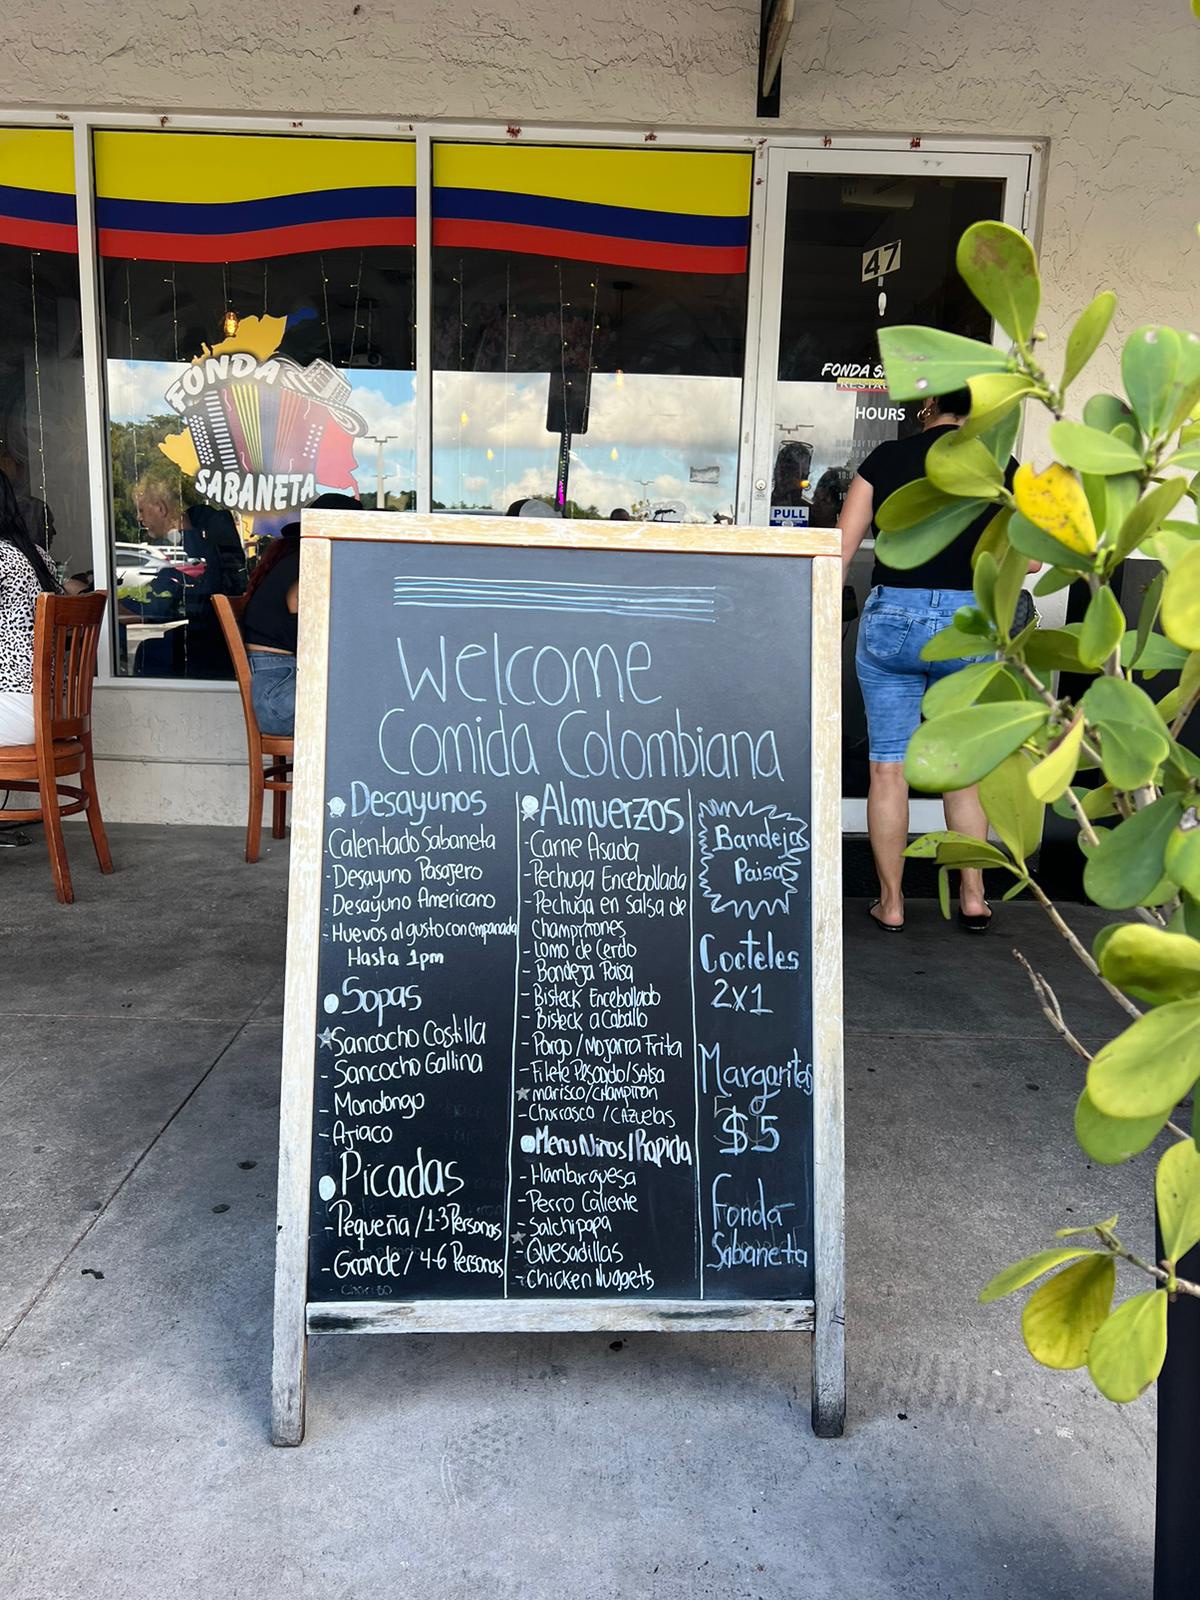 FONDA
SABANETA
47
FONDA
HOURS
PULL
Welcome
Comida Colombiana
Desayunos
-Calentado Sabaneta
-Desayuno Pasajero
-Desayuno Americano
-Huevos al gusto con empanada
Hasta 1pm
Sopas
Sancocho Costilla
-Sancocho Gallina
-Mondongo
-Ajiaco
Picadas
-Pequeña / 1-3 Personas
-Grande / 4-6 Personas
Almuerzos
-Carne Asada
-Pechuga Encebollada
-Pechuga en Salsa de
Champiñones
-Lomo de Cerdo
-Bandeja Paisa
-Bisteck Encebollado
-Bisteck a Caballo
-Pargo / Mojarra Frita
-Filete Pescado / Salsa
marisco / CHAMPIÑON
-Churrasco / CAZUElas
Menu Niños / Rapida
-Hamburguesa
-Perro Caliente
-Salchipapa
-Quesadillas
-Chicken Nuggets
Bandeja
Paisa
Cocteles
2x1
Margaritas
$5
Fonda
Sabaneta